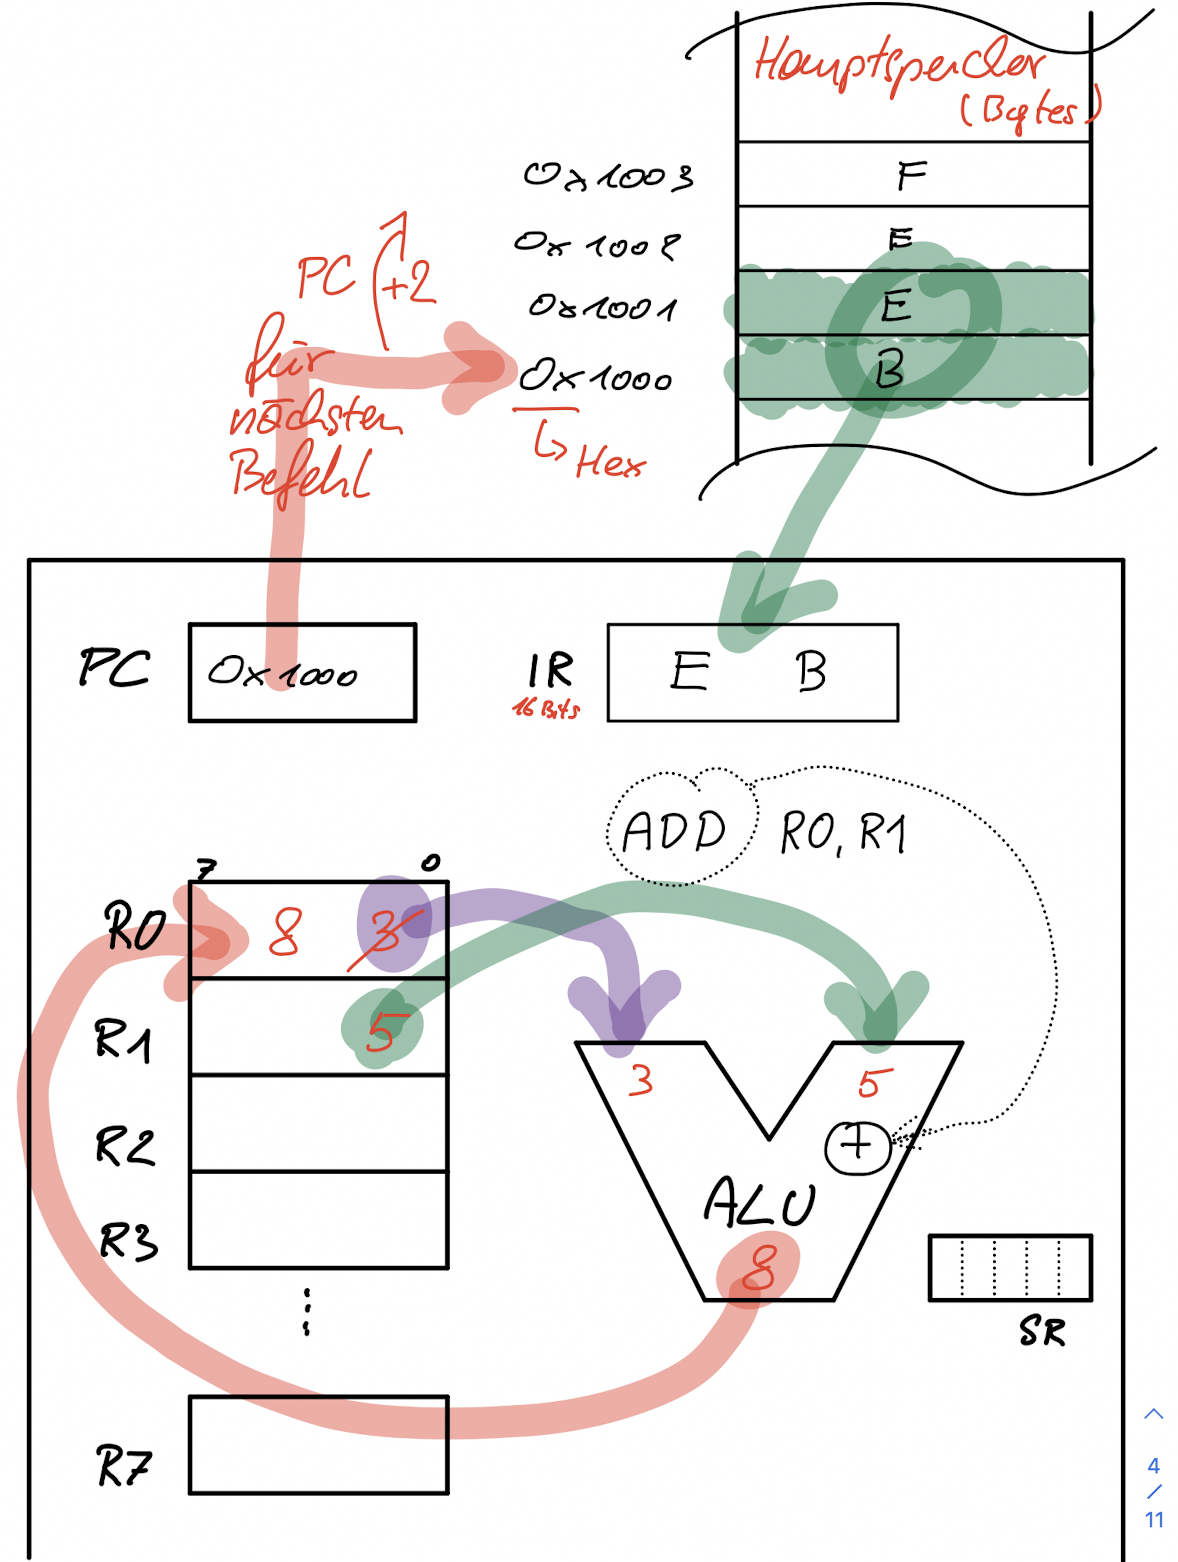 Hauptspeicher
(Bytes)
0x1003 F
0x1002 E
0x1001 E
0x1000 B
PC +2
für
nächsten
Befehl
↳ Hex
PC 0x1000
IR E B
16 Bits
ADD R0, R1
7 0
R0 8 3
R1 5
R2
R3
R7
3 5
+
ALU
8
SR
4
/
11